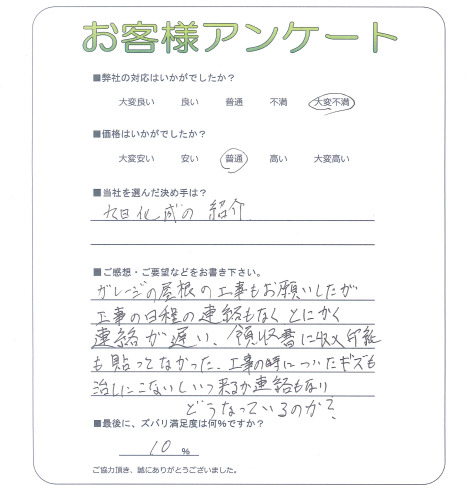 お客様アンケート
■弊社の対応はいかがでしたか？
大変良い 良い 普通 不満 大変不満
■価格はいかがでしたか？
大変安い 安い 普通 高い 大変高い
■当社を選んだ決め手は？
旭化成の紹介
■ご感想・ご要望などをお書き下さい。
ガレージの屋根の工事もお願いしたが
工事の日程の連絡もなくとにかく
連絡が遅い、領収書に収入印紙
も貼ってなかった。工事の時についたキズも
治しにこないしいつ来るか連絡もない
どうなっているのか？
■最後に、ズバリ満足度は何%ですか？
10 %
ご協力頂き、誠にありがとうございました。